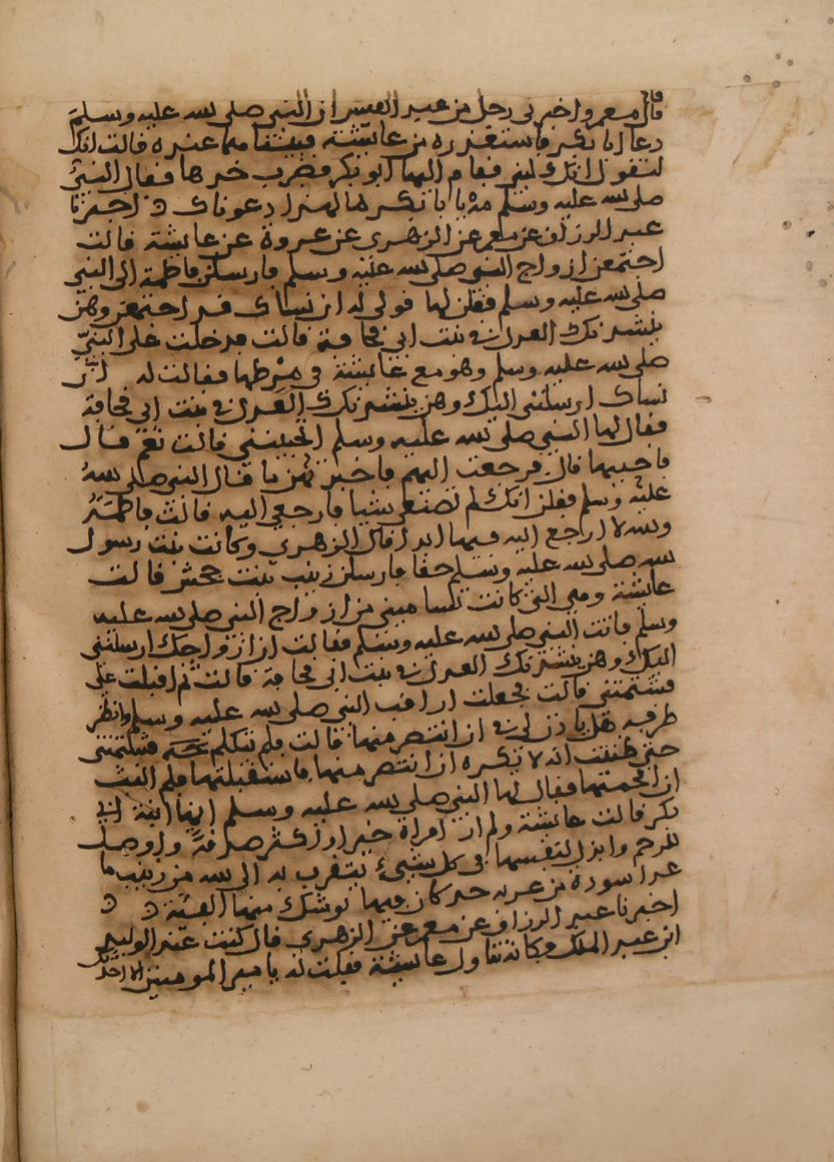 قال معمر واخبرنى رجل من عبد القيس ان النبي صلى الله عليه وسلم
دعا ابا بكر فاستعذره من عايشة فبينما هما عنده قالت انك
لتقول انك لنبي فقام اليها ابو بكر فضرب خدها فقال النبي
صلى الله عليه وسلم مه يا ابا بكر ما لهذا دعوناك اخبرنا
عبد الرزاق عن معمر عن الزهري عن عروة عن عايشة قالت
اجتمعن ازواج النبي صلى الله عليه وسلم فارسلن فاطمة الى النبي
صلى الله عليه وسلم فقلن لها قولي له ان نساك قد اجتمعن وهن
ينشدنك العدل في بنت ابي قحافة قالت فدخلت على النبي
صلى الله عليه وسلم وهو مع عايشة في مرطها فقالت له ان
نساك ارسلنني اليك وهن ينشدنك العدل في بنت ابي قحافة
فقال لها النبي صلى الله عليه وسلم اتحبينني قالت نعم قال
فاحبيها قال فرجعت اليهم فاخبرتهن ما قال النبي صلى الله
عليه وسلم فقلن انك لم تصنعي شيا فارجعي اليه قالت فاطمة
والله لا ارجع اليه فيها ابدا قال الزهري وكانت بنت رسول
الله صلى الله عليه وسلم حقا فارسلن زينب بنت جحش قالت
عايشة وهي التي كانت تساميني من ازواج النبي صلى الله عليه
وسلم فاتت النبي صلى الله عليه وسلم فقالت ان ازواجك ارسلنني
اليك وهن ينشدنك العدل في بنت ابي قحافة قالت ثم اقبلت علي
فشتمتني قالت فجعلت اراقب النبي صلى الله عليه وسلم وانظر
طرفه هل ياذن لي في ان انتصر منها قالت فلم يتكلم فشتمتني
حتى ظننت انه لا يكره ان انتصر منها فاستقبلتها فلم البث
ان افحمتها فقال لها النبي صلى الله عليه وسلم انها ابنة ابي
بكر قالت عايشة ولم ار امراة خير او اكثر صدقة واوصل
للرحم وابذل لنفسها في كل شيء يتقرب به الى الله من زينب ما
عدا سورة من غرب حد كان فيها توشك منها الفيئة
اخبرنا عبد الرزاق عن معمر عن الزهري قال كنت عند الوليد
ابن عبد الملك فكانه تناول عايشة فقلت له يا امير المومنين الا احدثك